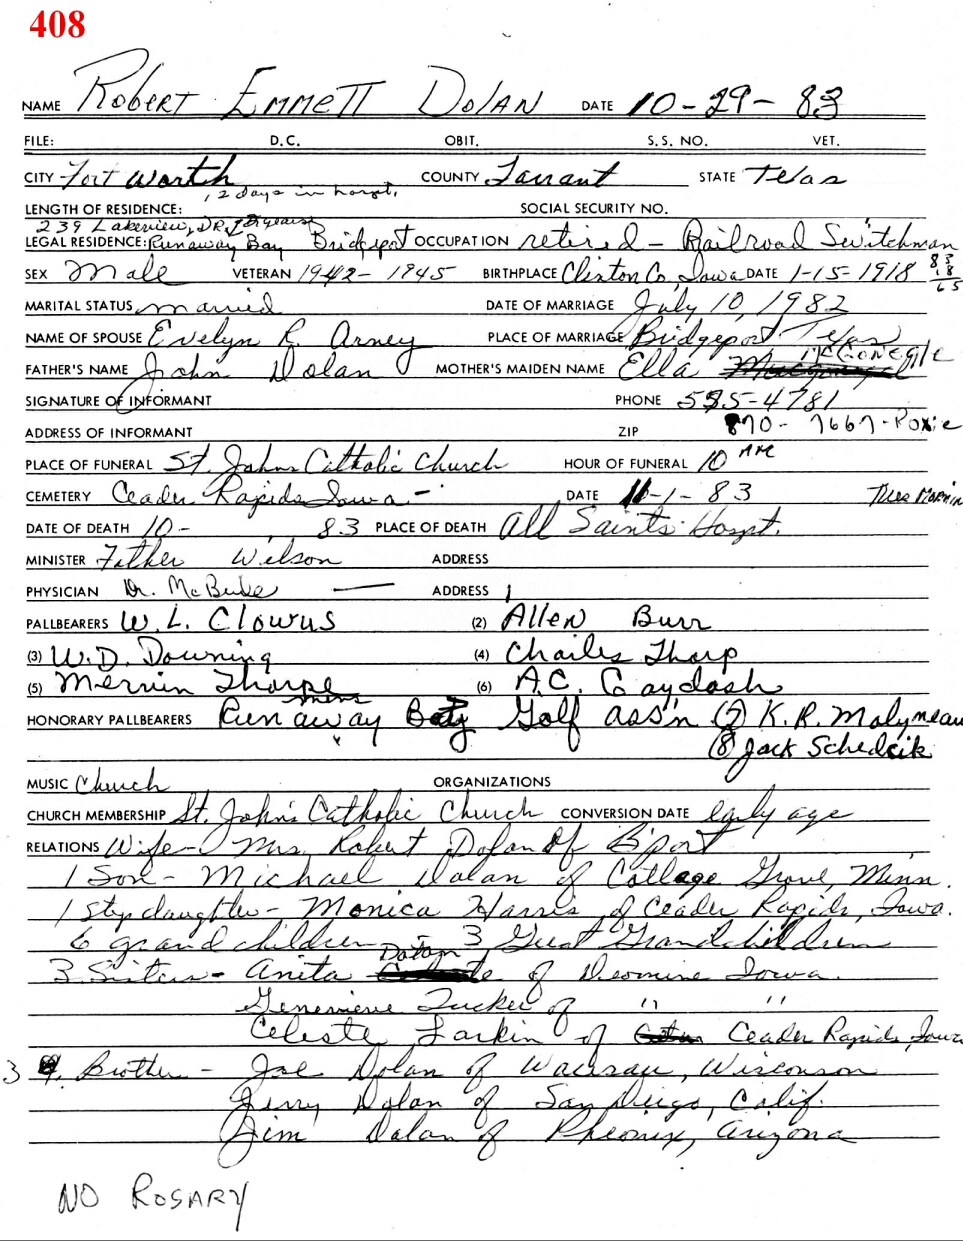 408
NAME Robert Emmett Dolan DATE 10-29-83
FILE: D.C. OBIT. S.S. NO. VET.
CITY Fort Worth COUNTY Tarrant STATE Texas
12 days in hospt.
LENGTH OF RESIDENCE: SOCIAL SECURITY NO.
239 Lakeview, DR. years
LEGAL RESIDENCE: Runaway Bay Bridgeport OCCUPATION retired - Railroad Switchman
SEX Male VETERAN 1942-1945 BIRTHPLACE Clinton Co, Iowa DATE 1-15-1918 83 18 65
MARITAL STATUS married DATE OF MARRIAGE July 10, 1982
NAME OF SPOUSE Evelyn R. Arney PLACE OF MARRIAGE Bridgeport Texas
FATHER'S NAME John Dolan MOTHER'S MAIDEN NAME Ella McGonegle
SIGNATURE OF INFORMANT PHONE 575-4781
ADDRESS OF INFORMANT ZIP 870-7667-Roxie
PLACE OF FUNERAL St. Johns Catholic Church HOUR OF FUNERAL 10 AM
CEMETERY Ceader Rapids Iowa - DATE 11-1-83 Tues Mornin
DATE OF DEATH 10- 83 PLACE OF DEATH All Saints Hospt.
MINISTER Father Wilson ADDRESS
PHYSICIAN Dr. McBride — ADDRESS
PALLBEARERS W.L. Clowus (2) Allen Burr
(3) W.D. Downing (4) Charles Thorp
(5) Mervin Thorpe (6) A.C. Gaydosh
mens
HONORARY PALLBEARERS Runaway Bay Golf ass'n (7) K.R. Molyneau
(8) Jack Schedcik
MUSIC Church ORGANIZATIONS
CHURCH MEMBERSHIP St. John's Catholic Church CONVERSION DATE early age
RELATIONS Wife - Mrs. Robert Dolan of B'port
1 Son - Michael Dolan of Cottage Grove, Minn.
1 Stepdaughter - Monica Harris of Ceader Rapids, Iowa.
6 grand children - 3 Great Grandchildren
3 Sisters - Anita Dolan of Deomine Iowa.
Genevieve Tucker of " "
Celeste Larkin of Ceader Rapids, Iowa
3 Brother - Joe Dolan of Waurau, Wisconson
Jerry Dolan of San Diego, Calif.
Jim Dolan of Pheonix, Arizona
NO ROSARY